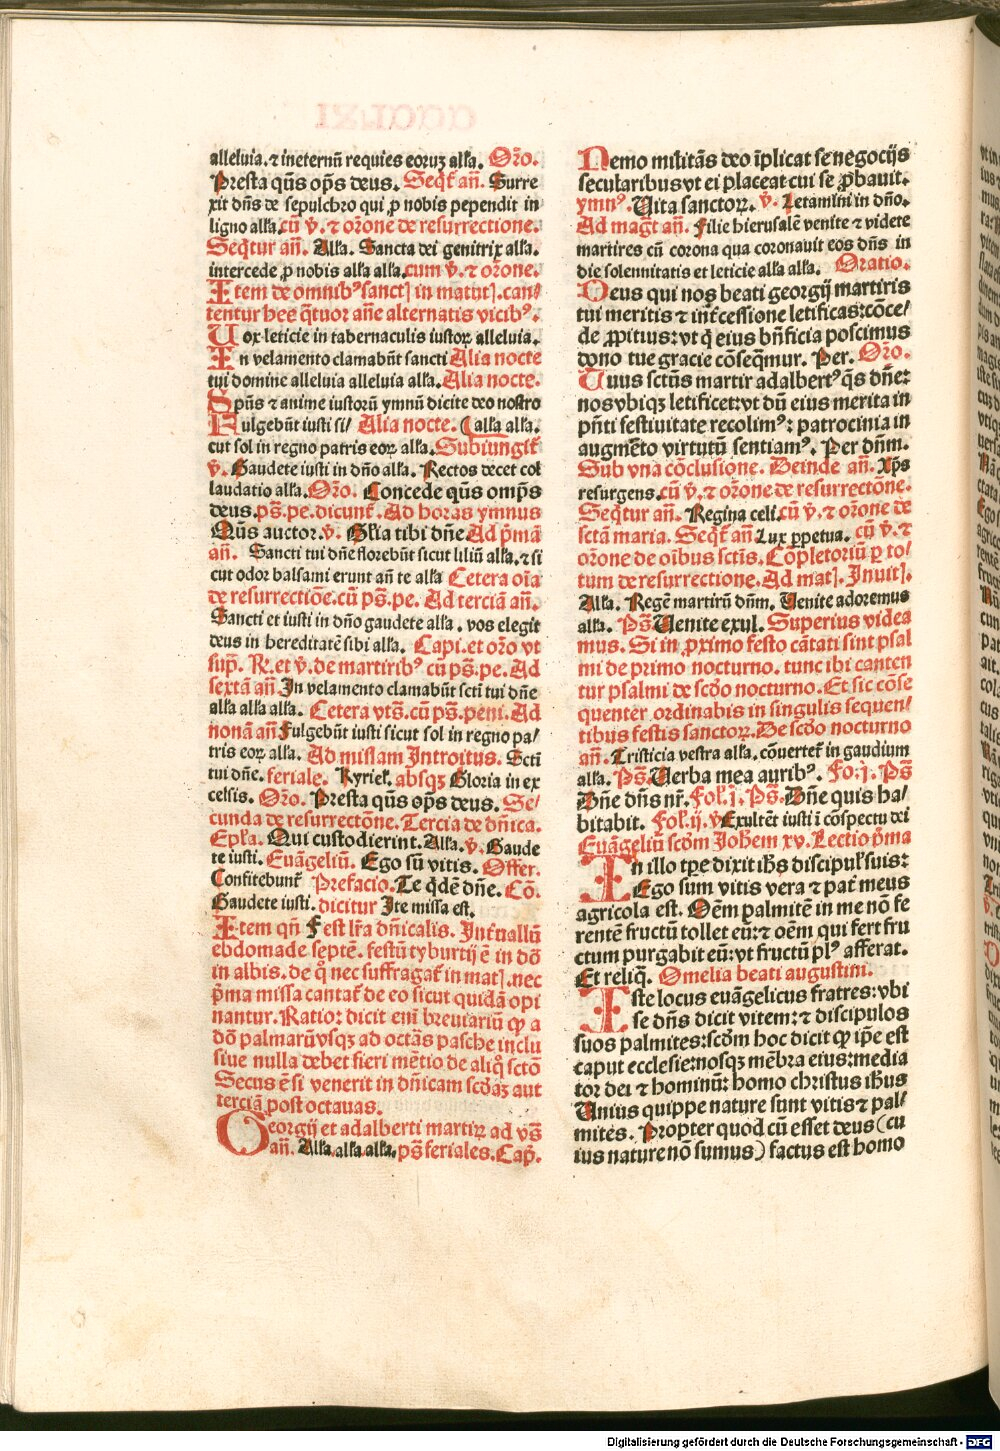 alleluia. ⁊ ineternū requies eoruȝ alľa. Oro̅.
Presta qūs op̄s deus. Seqt̄ an̄. Surre
xit dn̄s de sepulchro qui ꝓ nobis pependit in
ligno alľa. cū v̄. ⁊ oro̅ne de resurrectione.
Seqtur an̄. Alľa. Sancta dei genitrix alľa.
intercede ꝓ nobis alľa alľa. cum v̄. ⁊ oro̅ne.
Item de omnibꝰ sanctꝭ in matutꝭ. can/
tentur hee q̄tuor an̄e alternatis vicibꝰ.
Uox leticie in tabernaculis iustoꝝ alleluia.
In velamento clamabūt sancti Alia nocte
tui domine alleluia alleluia alľa. Alia nocte.
Spūs ⁊ anime iustorū ymnū dicite deo nostro
Fulgebūt iusti si/ Alia nocte. (alľa alľa.
cut sol in regno patris eoꝝ alľa. Subiungit̄
v̄. Gaudete iusti in dn̄o alľa. Rectos decet col
laudatio alľa. Oro̅. Concede qūs omp̄s
deus. ps̄. pe. dicunt̄. Ad horas ymnus
Qūs auctor. v̄. Gľia tibi dn̄e Ad p̄mā
an̄. Sancti tui dn̄e florebūt sicut liliū alľa. ⁊ si
cut odor balsami erunt an̄ te alľa Cetera oīa
de resurrectiōe. cū ps̄. pe. Ad terciā an̄.
Sancti et iusti in dn̄o gaudete alľa. vos elegit
deus in hereditatē sibi alľa. Capi. et oro̅ vt
sup̄. R. et v̄. de martiribꝰ cū ps̄. pe. Ad
sextā an̄ In velamento clamabūt scti̅ tui dn̄e
alľa alľa alľa. Cetera vts̄. cū ps̄. peni. Ad
nonā an̄ Fulgebūt iusti sicut sol in regno pa/
tris eoꝝ alľa. Ad missam Introitus. Scti̅
tui dn̄e. feriale. Kyrieľ. absqȝ Gloria in ex
celsis. Oro̅. Presta qūs op̄s deus. Se/
cunda de resurrecto̅ne. Tercia de dn̄ica.
Epľa. Qui custodierint. Alľa. v̄. Gaude
te iusti. Euāgeliū. Ego sū vitis. Offer.
Confitebunt̄ Prefacio. Te q̄dē dn̄e. Cō.
Gaudete iusti. dicitur Ite missa est.
Item qn̄ F est lr̄a dn̄icalis. Int̄uallū
ebdomade septē. festū tyburtij ē in do̅
in albis. de q̊ nec suffragat̄ in matꝭ. nec
p̄ma missa cantat̄ de eo sicut quidā opi
nantur. Ratio: dicit eni̅ breuiariū ꝙ a
do̅ palmarū vsqȝ ad octās pasche inclu
siue nulla debet fieri mētio de aliq̊ scto̅
Secus ē si venerit in dn̄icam scd̄aȝ aut
terciā post octauas.
Georgij et adalberti martiꝝ ad vs̄
an̄. Alľa. alľa. alľa. ps̄ feriales. Cap̄.
Nemo militās deo īplicat se negocijs
secularibus vt ei placeat cui se ꝓbauit.
ymnꝰ. Uita sanctoꝝ. v̄. Letamini in dn̄o.
Ad mag̅t an̄. Filie hierusalē venite ⁊ videte
martires cū corona qua coronauit eos dn̄s in
die solennitatis et leticie alľa alľa. Oratio.
Deus qui nos beati georgij martiris
tui meritis ⁊ int̄cessione letificas: cōce/
de ꝓpitius: vt q̄ eius bn̄ficia poscimus
dono tue gracie cōseq̄mur. Per. Oro̅.
Tuus sctūs martir adalbertꝰ q̄s dn̄e:
nos vbiqȝ letificet: vt dū eius merita in
pn̄ti festiuitate recolimꝰ: patrocinia in
augmēto virtutū sentiamꝰ. Per dn̄m.
Sub vna cōclusione. Deinde an̄. Xp̄s
resurgens. cū v̄. ⁊ oro̅ne de resurrecto̅ne.
Seqtur an̄. Regina celi. cū v̄. ⁊ oro̅ne de
sctā maria. Seqt̄ an̄ Lux ꝑpetua. cū v̄. ⁊
oro̅ne de oi̅bus sctīs. Cōpletoriū ꝑ to/
tum de resurrectione. Ad matꝭ. Inuitꝭ.
Alľa. Regē martirū dn̄m. Uenite adoremus
alľa. Ps̄ Uenite exul. Superius videa
mus. Si in ꝓximo festo cātati sint psal
mi de primo nocturno. tunc ibi canten
tur psalmi de scd̄o nocturno. Et sic cōse
quenter ordinabis in singulis sequen/
tibus festis sanctoꝝ. De scd̄o nocturno
an̄. Tristicia vestra alľa. cōuertet̄ in gaudium
alľa. Ps̄. Uerba mea auribꝰ. Fo: j. Ps̄
Dn̄e dn̄s nr̄. Foľ. j. Ps̄. Dn̄e quis ha/
bitabit. Foľ. ij. v̄ Exultēt iusti i̅ cōspectu dei
Euāgeliū scd̄m Joh̄em xv. Lectio p̄ma
In illo tp̄e dixit ih̄s discipuľ suis:
Ego sum vitis vera ⁊ pat̄ meus
agricola est. Oēm palmitē in me nō fe
rentē fructū tollet eū: ⁊ oēm qui fert fru
ctum purgabit eū: vt fructū plꝰ afferat.
Et reliq̄. Omelia beati augustini.
Iste locus euāgelicus fratres: vbi
se dn̄s dicit vitem: ⁊ discipulos
suos palmites: scd̄m hoc dicit ꝙ ip̄e est
caput ecclesie: nosqȝ mēbra eius: media
tor dei ⁊ hominū: homo christus ih̄us
Unius quippe nature sunt vitis ⁊ pal/
mites. Propter quod cū esset deus (cu
ius nature nō sumus) factus est homo
Digitalisierung gefördert durch die Deutsche Forschungsgemeinschaft - DFG